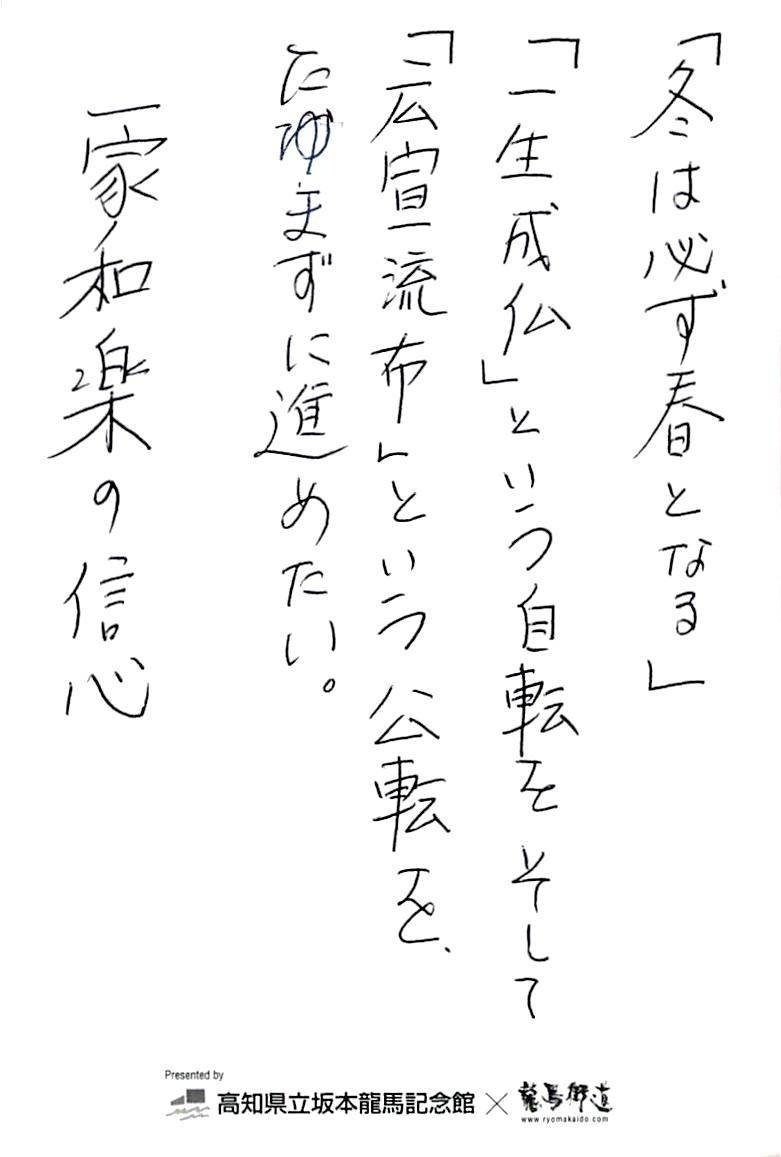 「冬は必ず春となる」
「一生成仏」という自転を そして
「広宣流布」という公転を、
たゆまずに進めたい。
一家和楽の信心
Presented by
高知県立坂本龍馬記念館×龍馬街道
www.ryomakaido.com